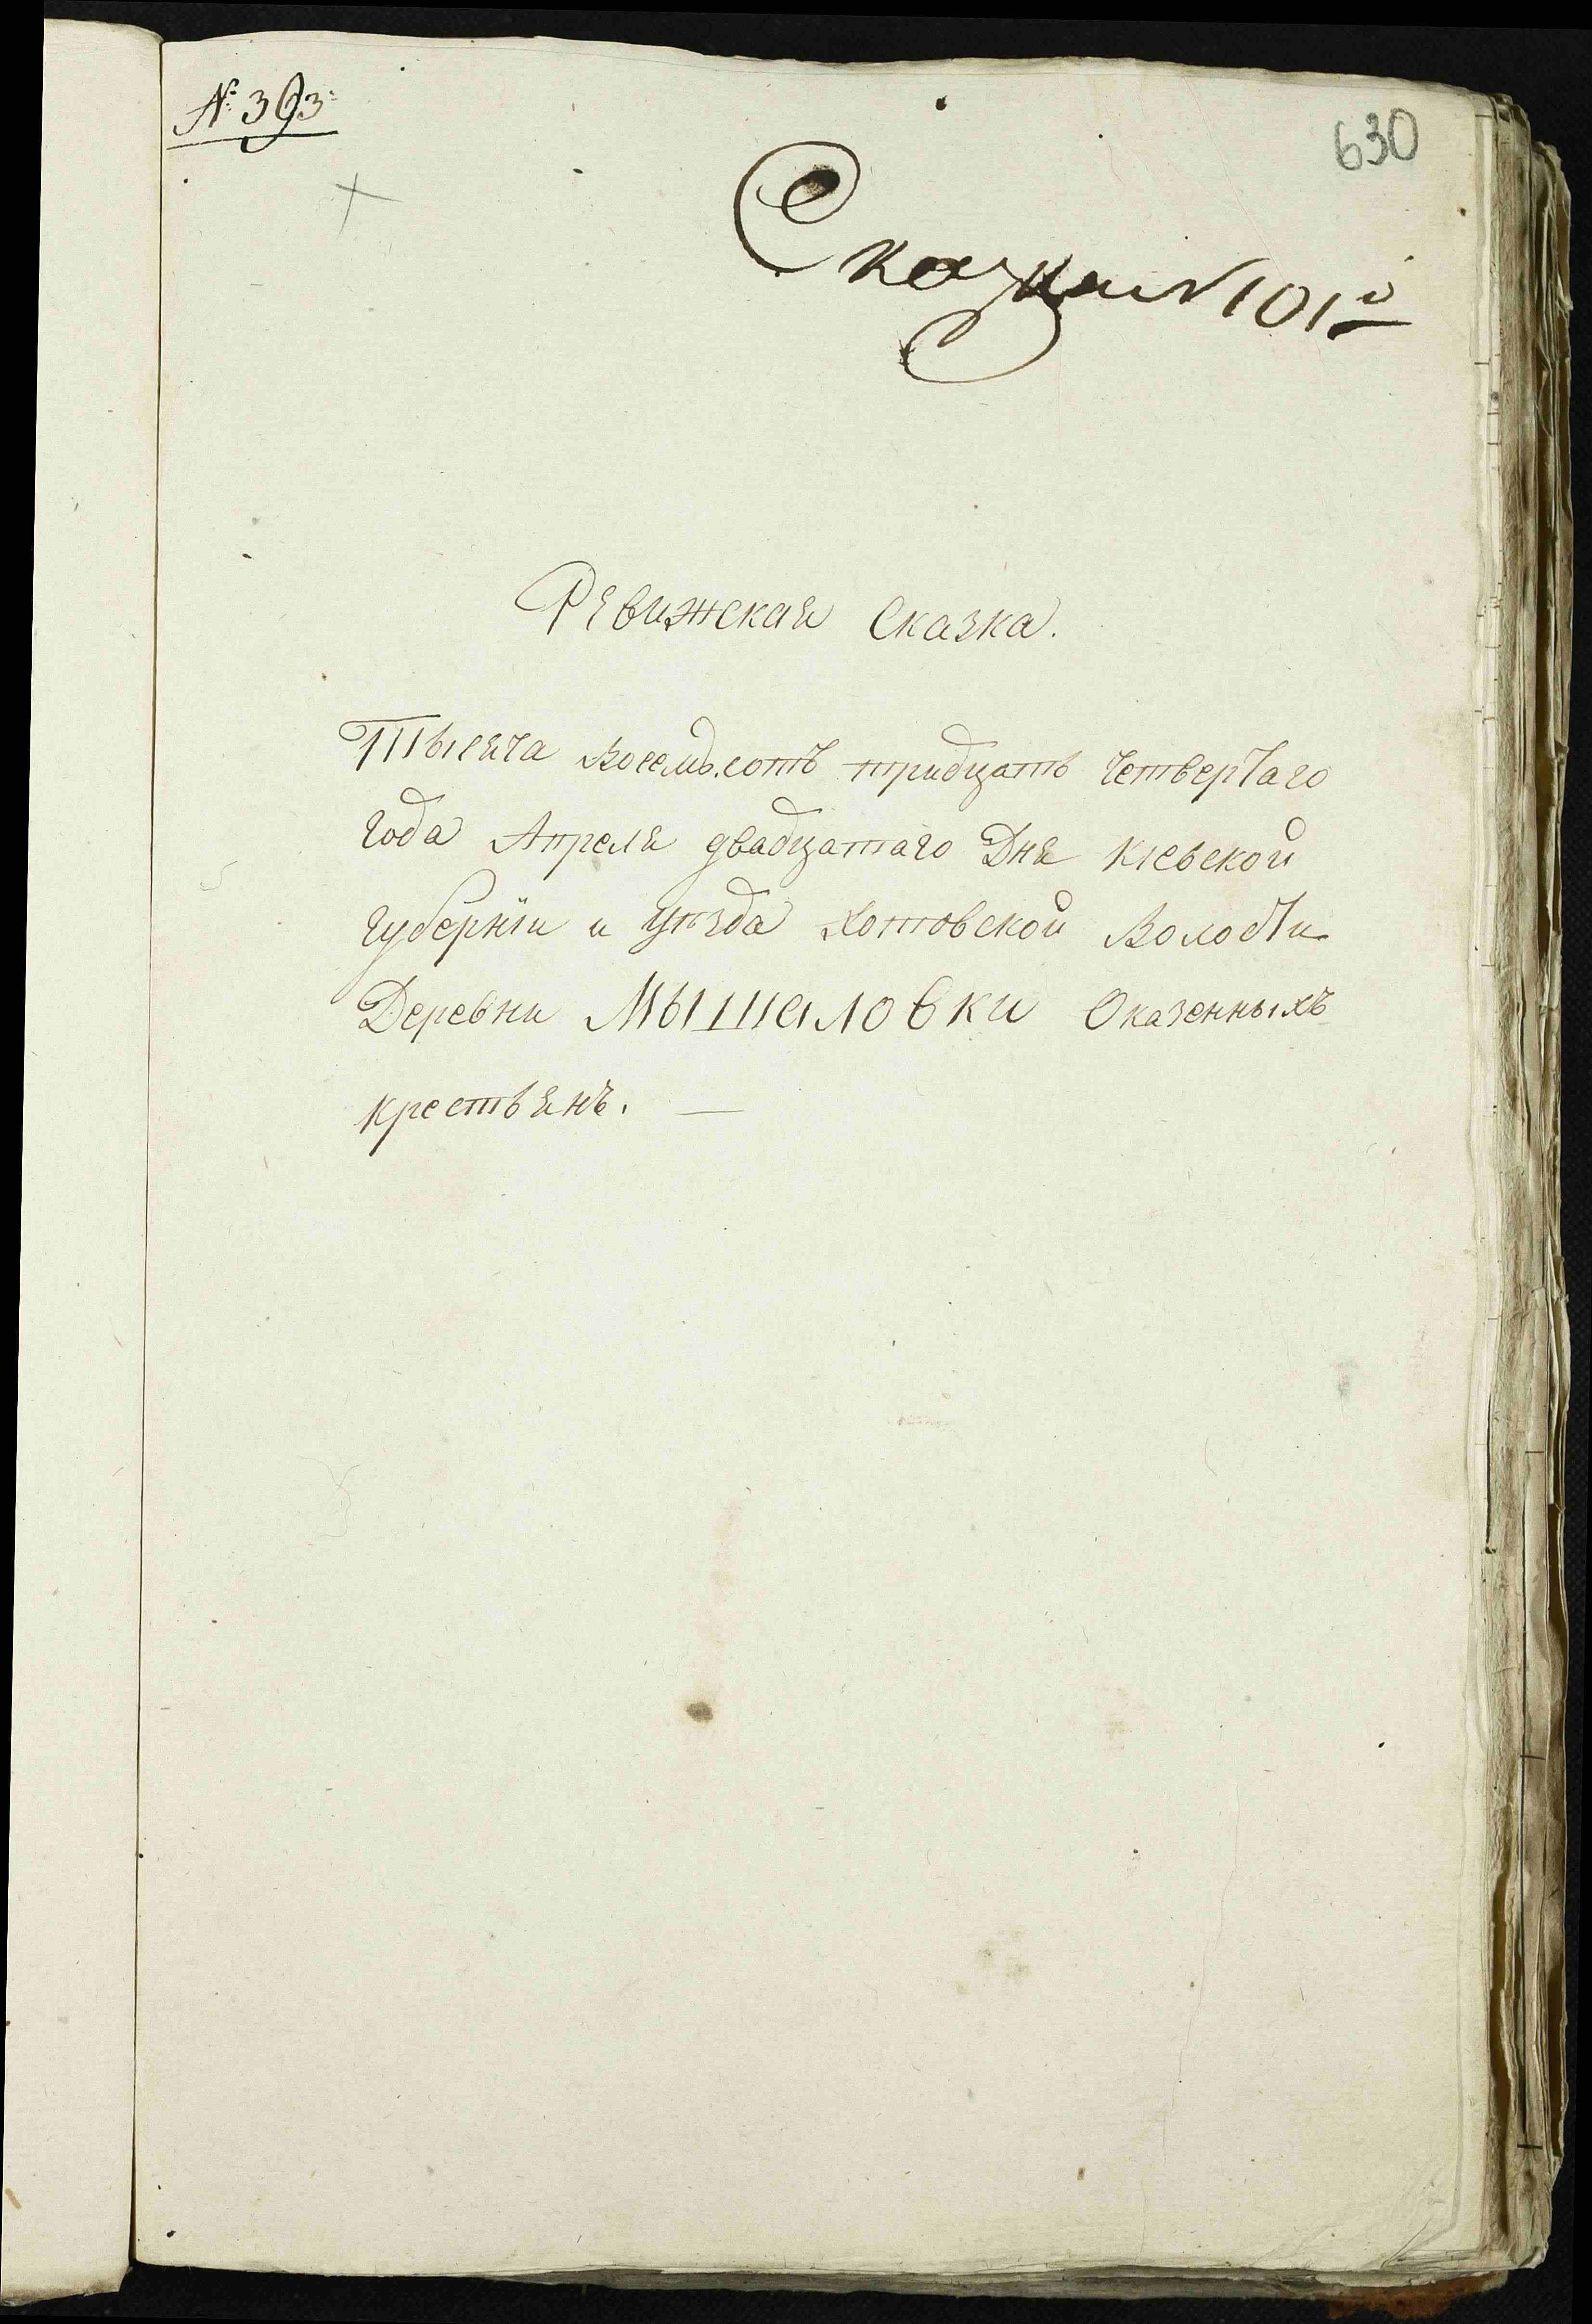 № 393
630
Сказка № 101й
Ревижская Сказка.
Тысяча восемь сотъ тридцать четвертаго
года Апреля двадцатаго Дня Кіевской
губерніи и уѣзда Хотовской Волости
Деревни Мышаловки Оказенныхъ
крестьянъ. —